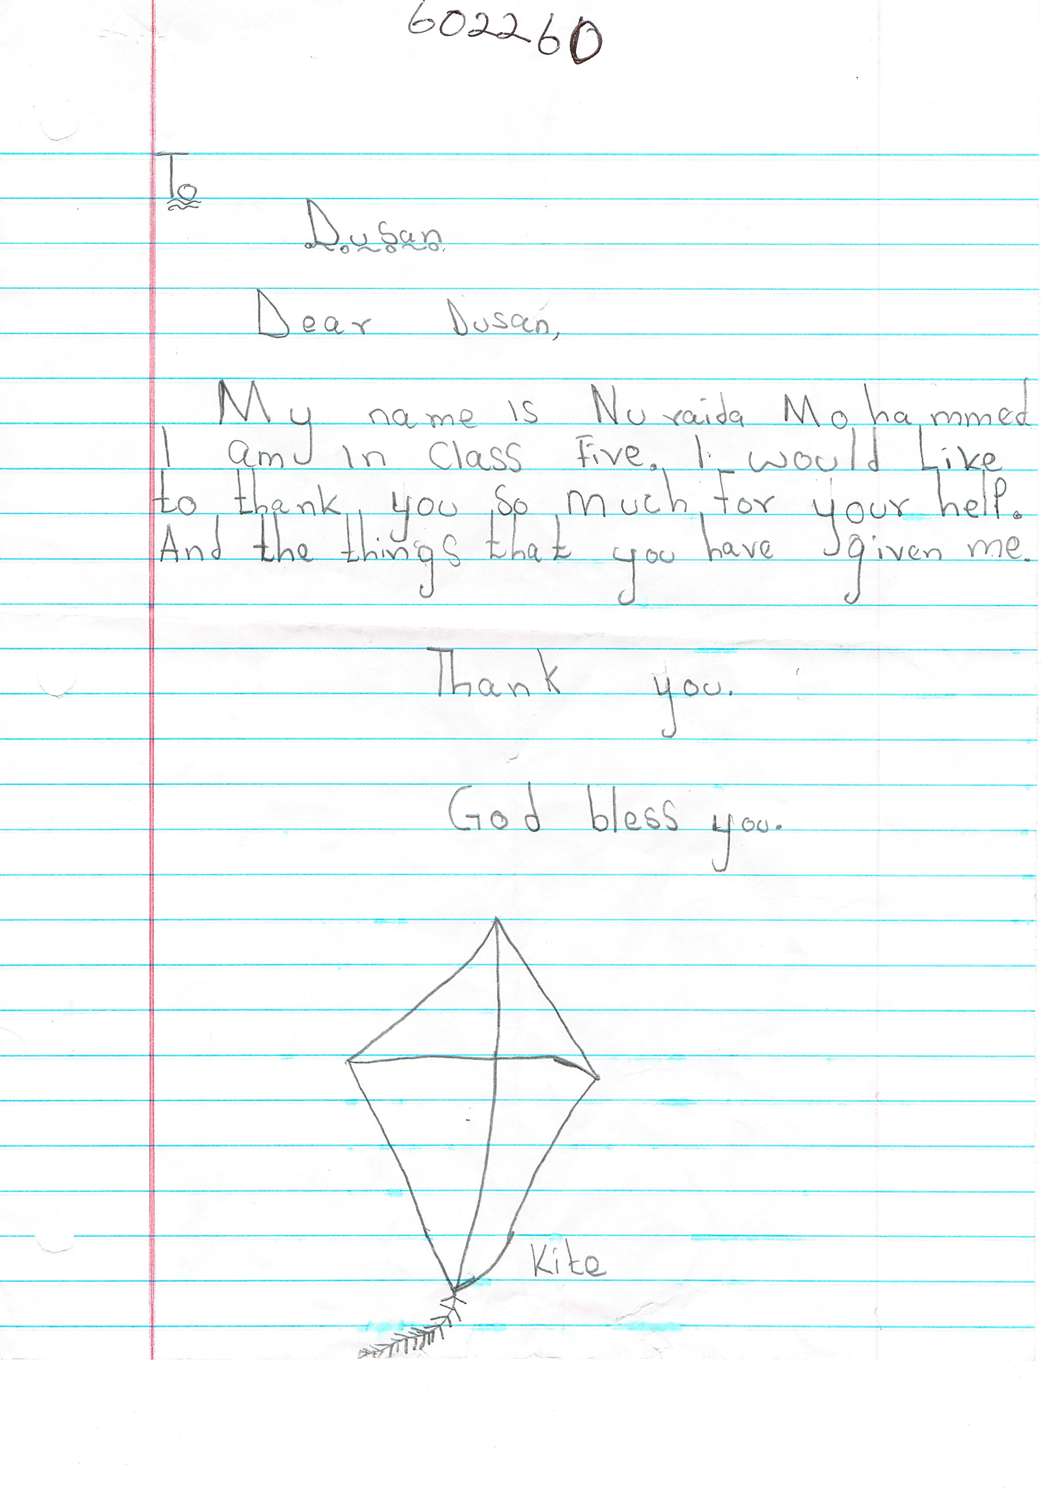 602260
To
Dusan
Dear Dusan,
My name is Nuraida Mohammed
I am in Class Five. I would Like
to thank you so much for your help.
And the things that you have given me.
Thank you.
God bless you.
Kite